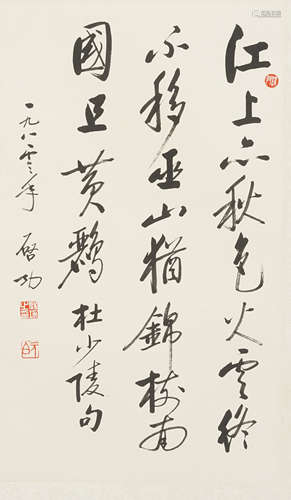 江上亦秋色火雲終
不移巫山猶錦樹南
國且黃鸝 杜少陵句
一九八零年 啓功